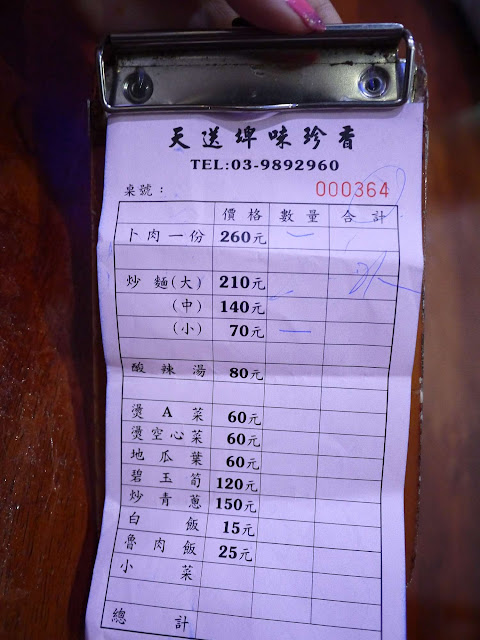 天送埤味珍香
TEL:03-9892960
桌號： 000364
價格 數量 合計
卜肉一份 260元 一
炒麵(大) 210元
(中) 140元
(小) 70元 一
酸辣湯 80元
燙A菜 60元
燙空心菜 60元
地瓜葉 60元
碧玉筍 120元
炒青蔥 150元
白飯 15元
魯肉飯 25元
小菜
總計